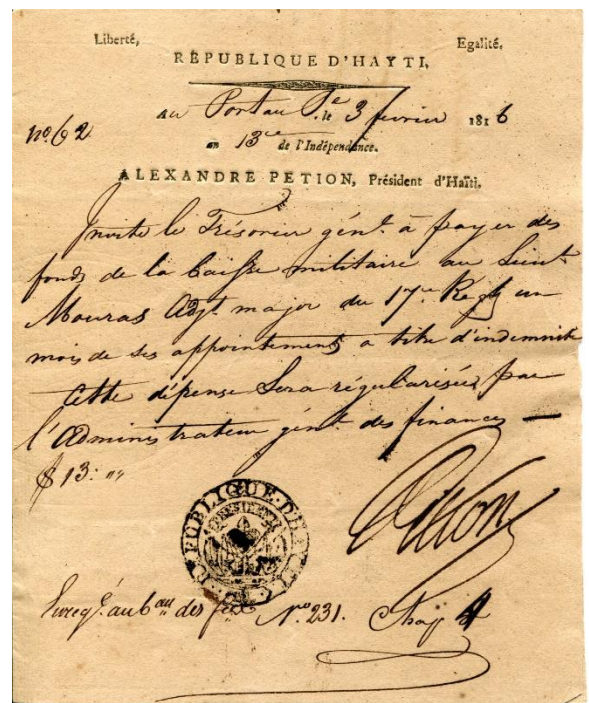 Liberté, Egalité,
RÉPUBLIQUE D'HAYTI,
Au Port au P.ce le 3 février 1816
nº. 62
an 13.e de l'Indépendance.
ALEXANDRE PETION, Président d'Haïti,
Invite le Trésorier gén.l à payer des
fonds de la Caisse militaire au Lieut.
Mouras Adj.t major du 17.e Reg.t un
mois de ses appointements a titre d'indemnité
Cette dépense Sera régularisée par
l'Administrateur gén.l des finances —
$ 13: " "
REPUBLIQUE D'HAYTI
Petion
Enreg.é au b.au des N.º 231.